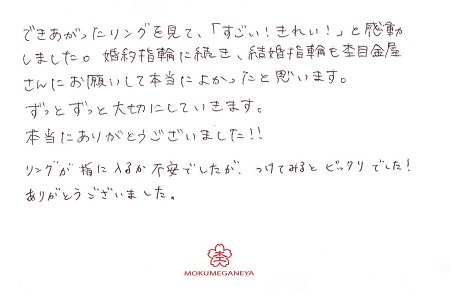 できあがったリングを見て、「すごい！きれい！」と感動
しました。婚約指輪に続き、結婚指輪も杢目金屋
さんにお願いして本当によかったと思います。
ずっとずっと大切にしていきます。
本当にありがとうございました！！
リングが指に入るか不安でしたが、つけてみるとピックリでした！
ありがとうございました。
杢
MOKUMEGANEYA